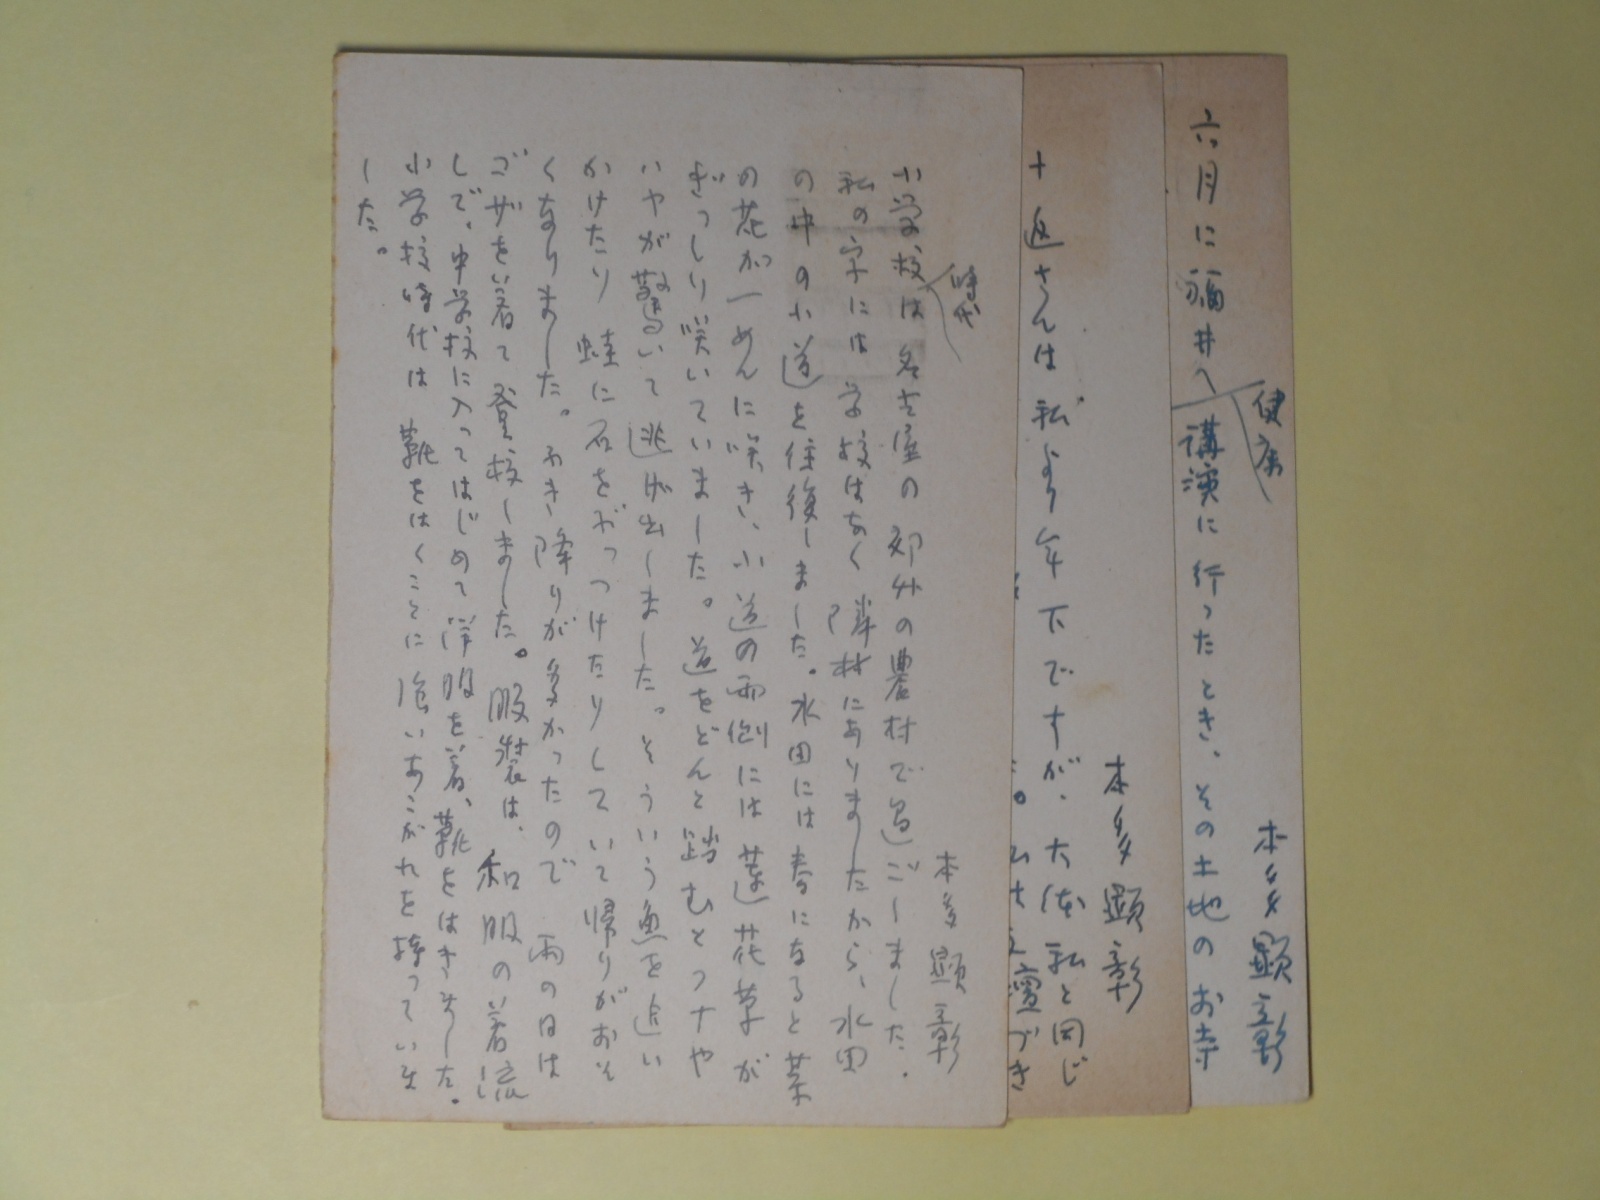 健康
本多顕彰
六月に福井へ講演に行ったとき、その土地のお寺
本多顕彰
十返さんは私より年下ですが、大体私と同じ
時代
本多顕彰
小学校は名古屋の郊外の農村で過ごしました。
私の字には学校はなく隣村にありましたから、水田
の中の小道を往復しました。水田には春になると菜
の花が一めんに咲き、小道の両側には蓮花草が
ぎっしり咲いていました。道をどんと踏むとフナや
ハヤが驚いて逃げ出しました。そういう魚を追い
かけたり蛙に石をぶっつけたりしていて帰りがおそ
くなりました。ふき降りが多かったので雨の日は
ゴザを着て登校しました。服装は、和服の着流
しで、中学校に入ってはじめて洋服を着、靴をはきました。
小学校時代は靴をはくことに強いあこがれを持っていま
した。